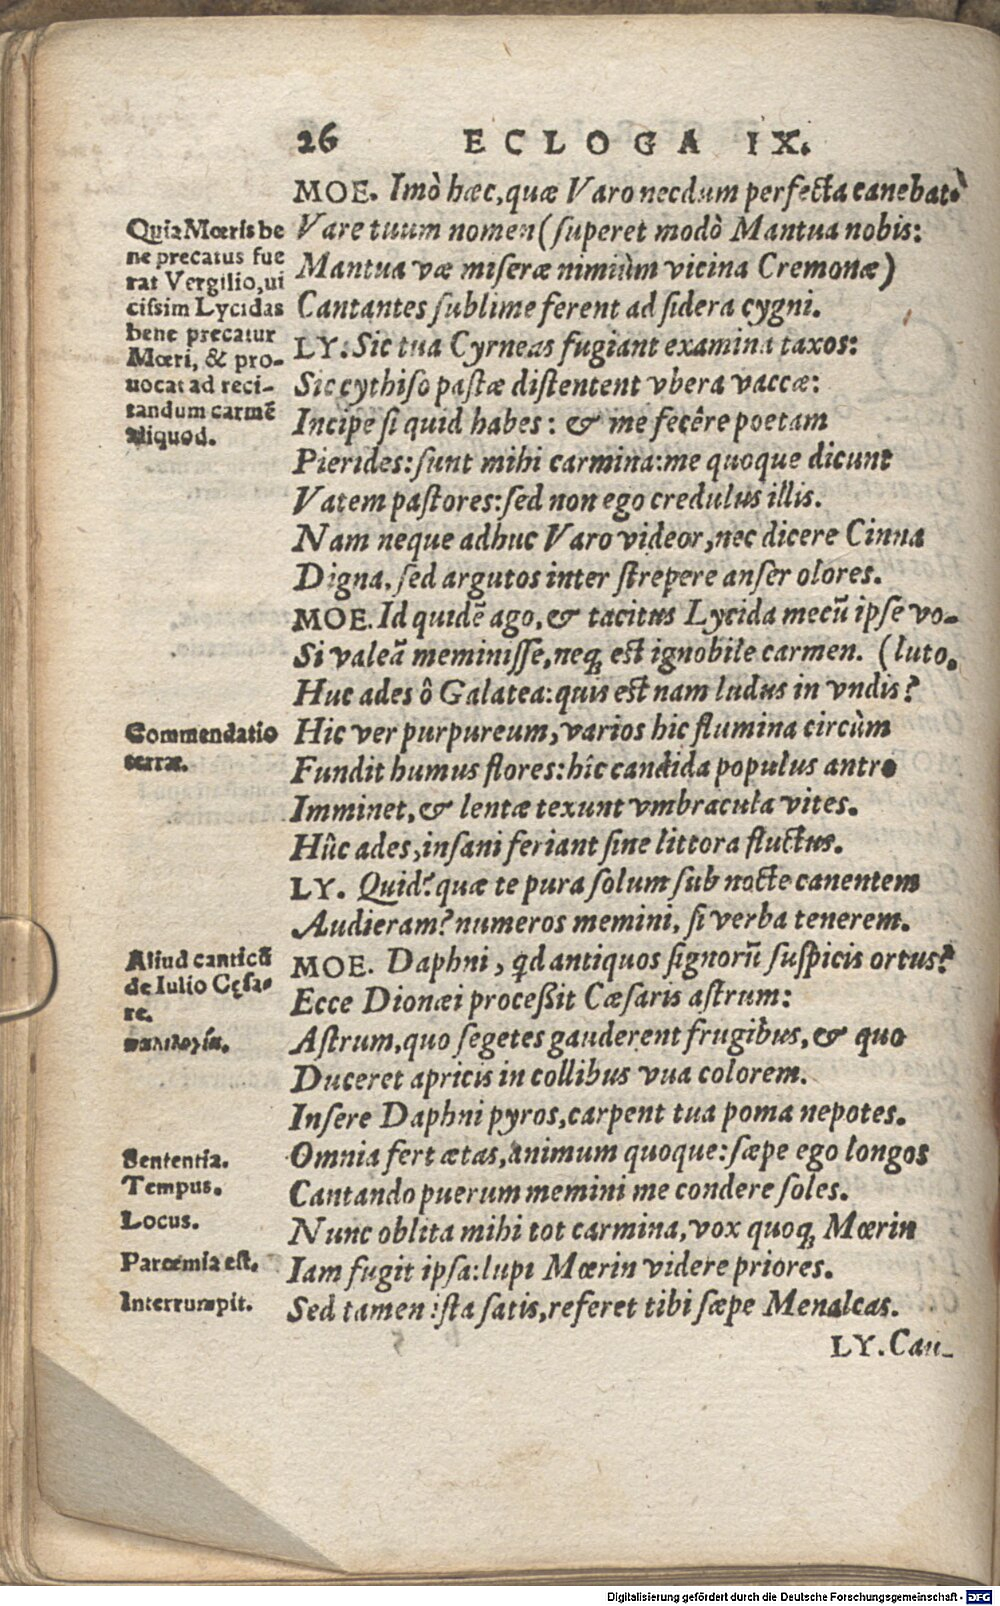 26 ECLOGA IX.
MOE. Imò hæc, quæ Varo necdum perfecta canebat.
Vare tuum nomen (superet modò Mantua nobis:
Mantua væ miseræ nimiùm vicina Cremonæ)
Cantantes sublime ferent ad sidera cygni.
LY. Sic tua Cyrneas fugiant examina taxos:
Sic cythiso pastæ distentent vbera vaccæ:
Incipe si quid habes: & me fecêre poetam
Pierides: sunt mihi carmina: me quoque dicunt
Vatem pastores: sed non ego credulus illis.
Nam neque adhuc Varo videor, nec dicere Cinna
Digna, sed argutos inter strepere anser olores.
MOE. Id quidẽ ago, & tacitus Lycida mecũ ipse vo-
Si valeã meminisse, neq; est ignobile carmen. (luto.
Huc ades ô Galatea: quis est nam ludus in vndis?
Hic ver purpureum, varios hic flumina circùm
Fundit humus flores: hîc candida populus antro
Imminet, & lentæ texunt vmbracula vites.
Hûc ades, insani feriant sine littora fluctus.
LY. Quid? quæ te pura solum sub nocte canentem
Audieram? numeros memini, si verba tenerem.
MOE. Daphni, qd antiquos signorũ suspicis ortus?
Ecce Dionæi processit Cæsaris astrum:
Astrum, quo segetes gauderent frugibus, & quo
Duceret apricis in collibus vua colorem.
Insere Daphni pyros, carpent tua poma nepotes.
Omnia fert ætas, animum quoque: sæpe ego longos
Cantando puerum memini me condere soles.
Nunc oblita mihi tot carmina, vox quoq; Mœrin
Iam fugit ipsa: lupi Mœrin videre priores.
Sed tamen ista satis, referet tibi sæpe Menalcas.
LY. Cau-
Quia Mœris be
ne precatus fue
rat Vergilio, ui
cissim Lycidas
bene precatur
Mœri, & pro-
uocat ad reci-
tandum carmẽ
aliquod.
Commendatio
terræ.
Aliud canticũ
de Iulio Cęsa-
re.
παλιλογία.
Sententia.
Tempus.
Locus.
Parœmia est.
Interrumpit.
Digitalisierung gefördert durch die Deutsche Forschungsgemeinschaft - DFG